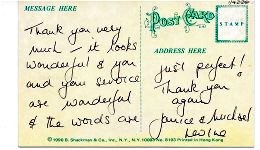 114226
MESSAGE HERE
POST CARD
STAMP
Thank you very
much - it looks
wonderful & you
and your service
are wonderful
& the words are
ADDRESS HERE
just perfect!
Thank you
again
Janice & Michael
Levine
© 1990 B. Shackman & Co., Inc., N.Y., N.Y. 10003 No. 8193 Printed in Hong Kong